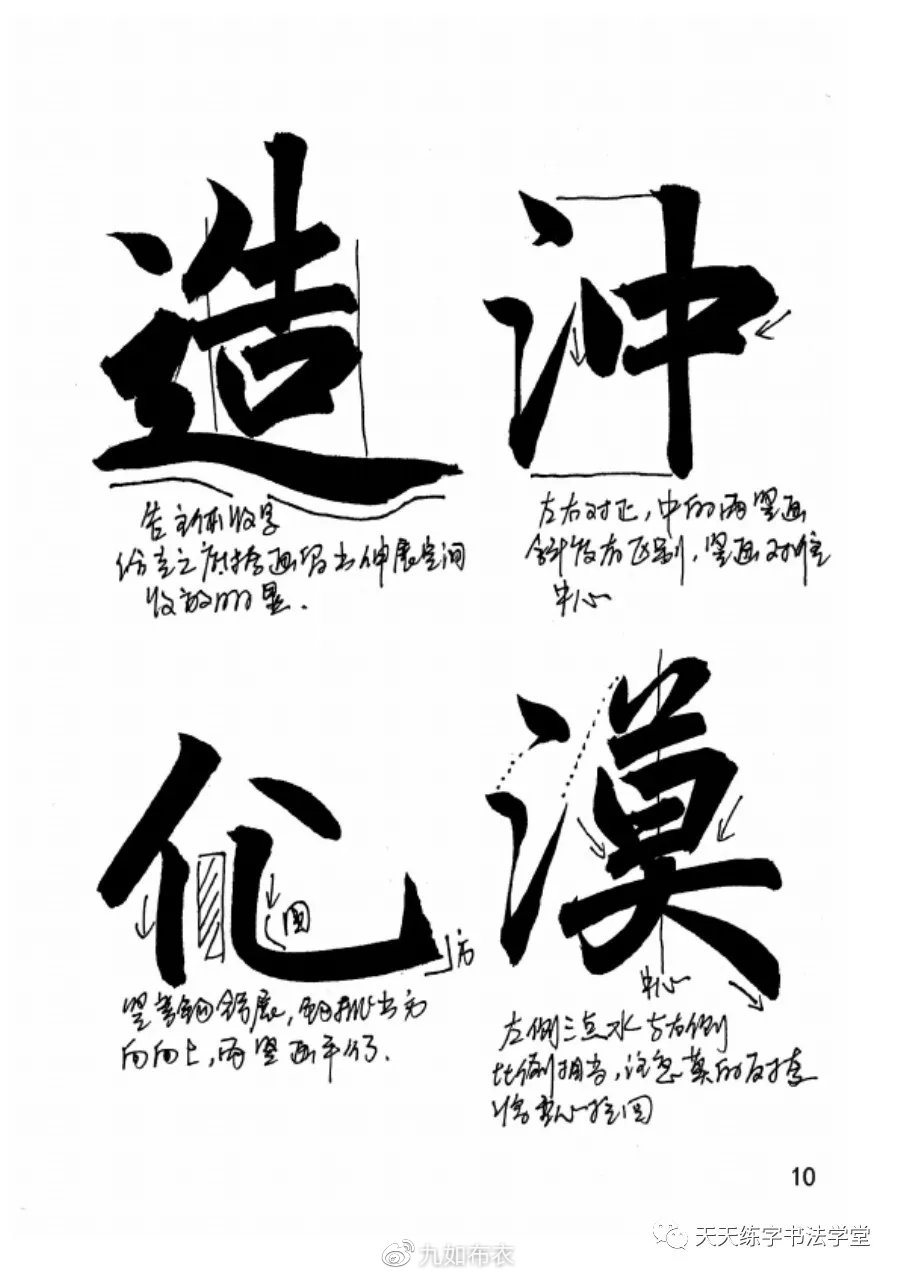 造
告主体收字
给走之底捺画留出伸展空间
收放明显.
冲
左右对正，中的两竖画
斜度有区别，竖画对准
中心
化
圆
方
竖弯钩舒展，钩挑出方
向向上，两竖画平行.
漠
中心
左侧三点水与右侧
比例相当，注意莫的反捺
将重心拉回
10
天天练字书法学堂
九如布衣